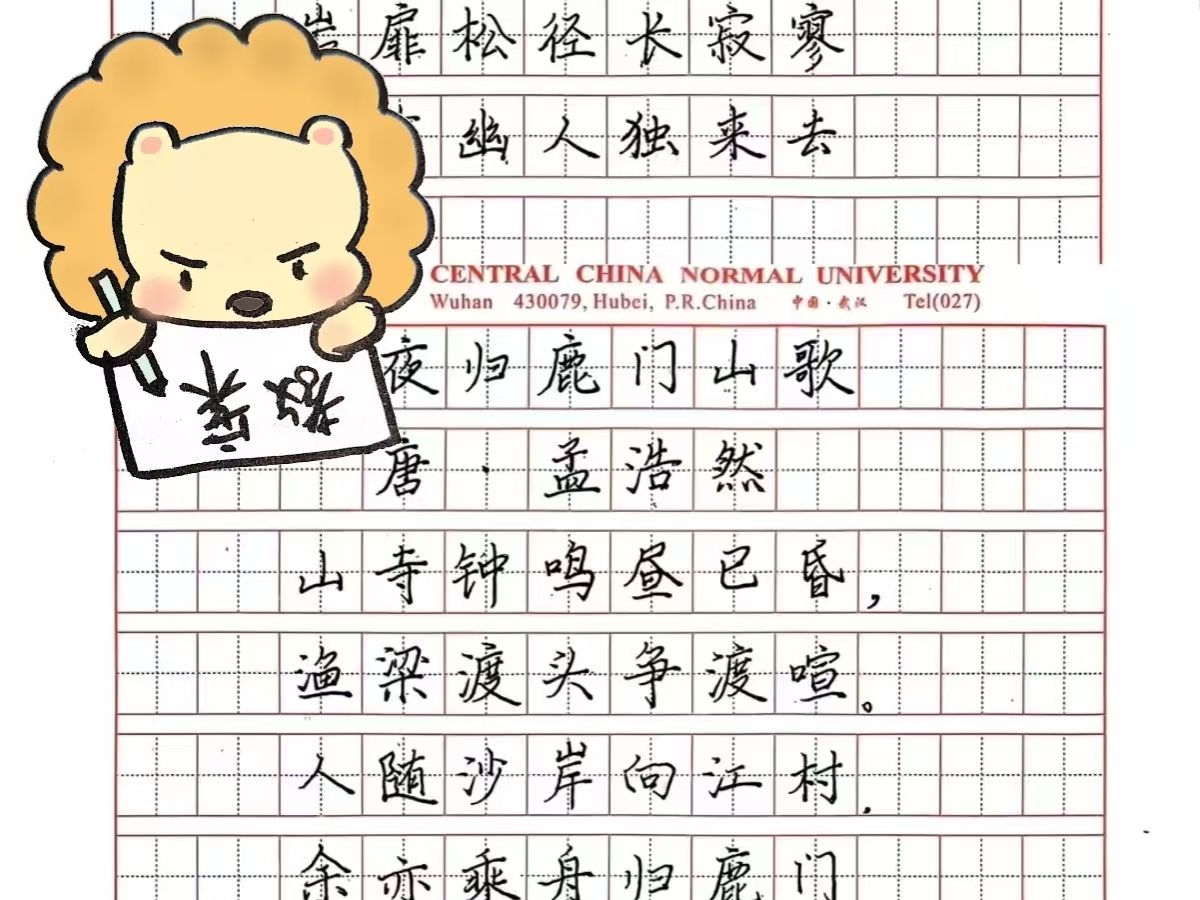 扉松径长寂寥
幽人独来去
CENTRAL CHINA NORMAL UNIVERSITY
Wuhan 430079, Hubei, P.R.China 中国·武汉 Tel(027)
教案
夜归鹿门山歌
唐·孟浩然
山寺钟鸣昼已昏，
渔梁渡头争渡喧。
人随沙岸向江村，
余亦乘舟归鹿门